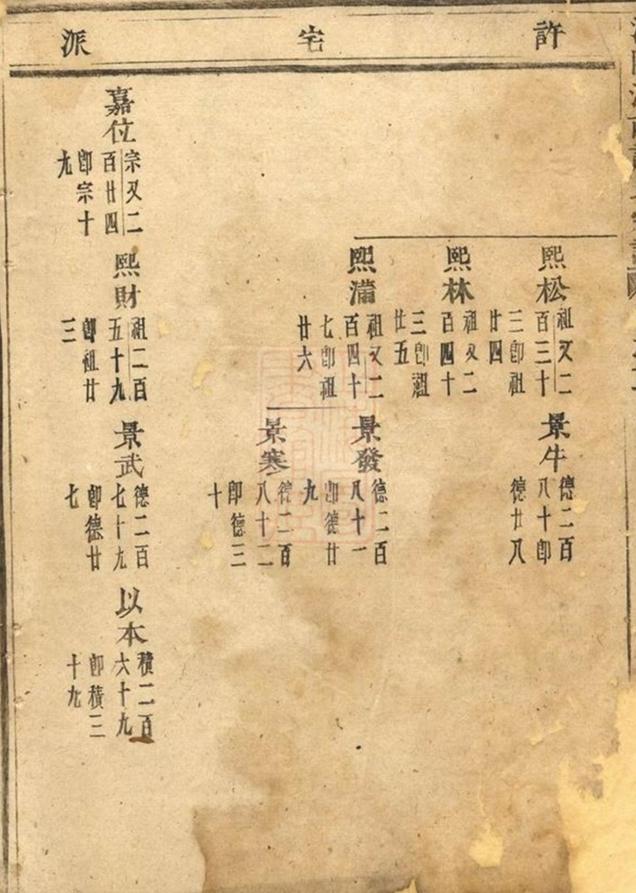 許宅派
熙松
祖又二
百三十
三即祖
廿四
景牛
德二百
八十即
德廿八
熙林
祖又二
百四十
三即祖
廿五
熙蒲
祖又二
百四十
七即祖
廿六
景發
德二百
八十一
即德廿
九
景寒
德二百
八十二
即德三
十
嘉位
宗又二
百廿四
即宗十
九
熙財
祖二百
五十九
即祖廿
三
景武
德二百
七十九
即德廿
七
以本
積二百
六十九
即積三
十九